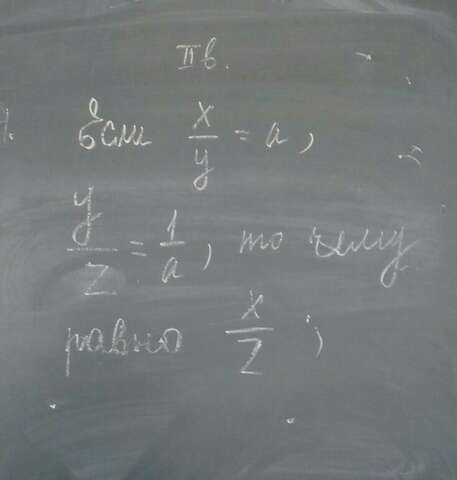 II в.
1. Если x/y = a,
y/z = 1/a, то чему
равно x/z ;